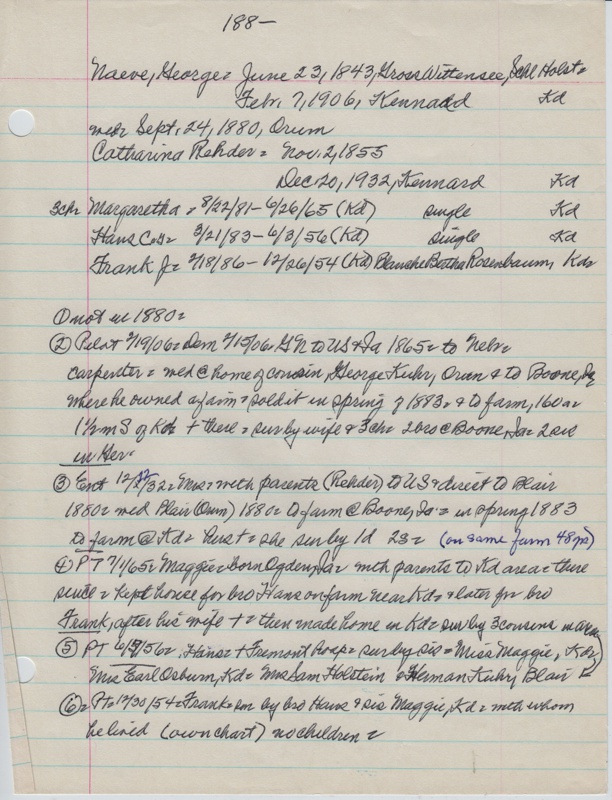 188-
Naeve, George = June 23, 1843, Gross Wittensee, Schl Holst =
Febr. 7, 1906, Kennard Kd
med = Sept. 24, 1880, Orum
Catharina Rehder = Nov. 2, 1855
Dec 20, 1932, Kennard Kd
3ch = Margaretha = 8/22/81 - 6/26/65 (Kd) single Kd
Hans C = 3/21/83 - 6/3/56 (Kd) single Kd
Frank J = 2/18/86 - 12/26/54 (Kd) Blanche Bertha Rosenbaum, Kd =
① not in 1880 =
② Pilot 2/19/06 = Dem 2/15/06 = to US & Ia 1865 = to Nebr =
carpenter = med @ home of cousin, George Kuhr, Orum & to Boone, Ia
where he owned a farm = sold it in spring of 1883 = & to farm, 160a =
1½ m S of Kd + there = sur by wife & 3ch = 2 bro @ Boone, Ia = 2 sis
in Ger =
③ Ent 12/22/32 = Mrs = with parents (Rehder) to US & direct to Blair
1880 = med Blair (Orum) 1880 = to farm @ Boone, Ia = in spring 1883
to farm @ Kd = hus + = she sur by 1d 2s = (on same farm 48 yrs)
④ PT 7/1/65 = Maggie = born Ogden, Ia = with parents to Kd area = there
since = kept house for bro Hans on farm near Kd = & later for bro
Frank, after his wife + = then made home in Kd = sur by 3 cousins in area
⑤ PT 6/7/56 = Hans = + Fremont hosp = sur by sis = Miss Maggie, Kd =
Mrs Earl Osburn, Kd = Mrs Sam Holstein & Herman Kuhr, Blair
⑥ = PT = 12/30/54 = Frank = sur by bro Hans & sis Maggie, Kd = with whom
he lived (own chart) no children =